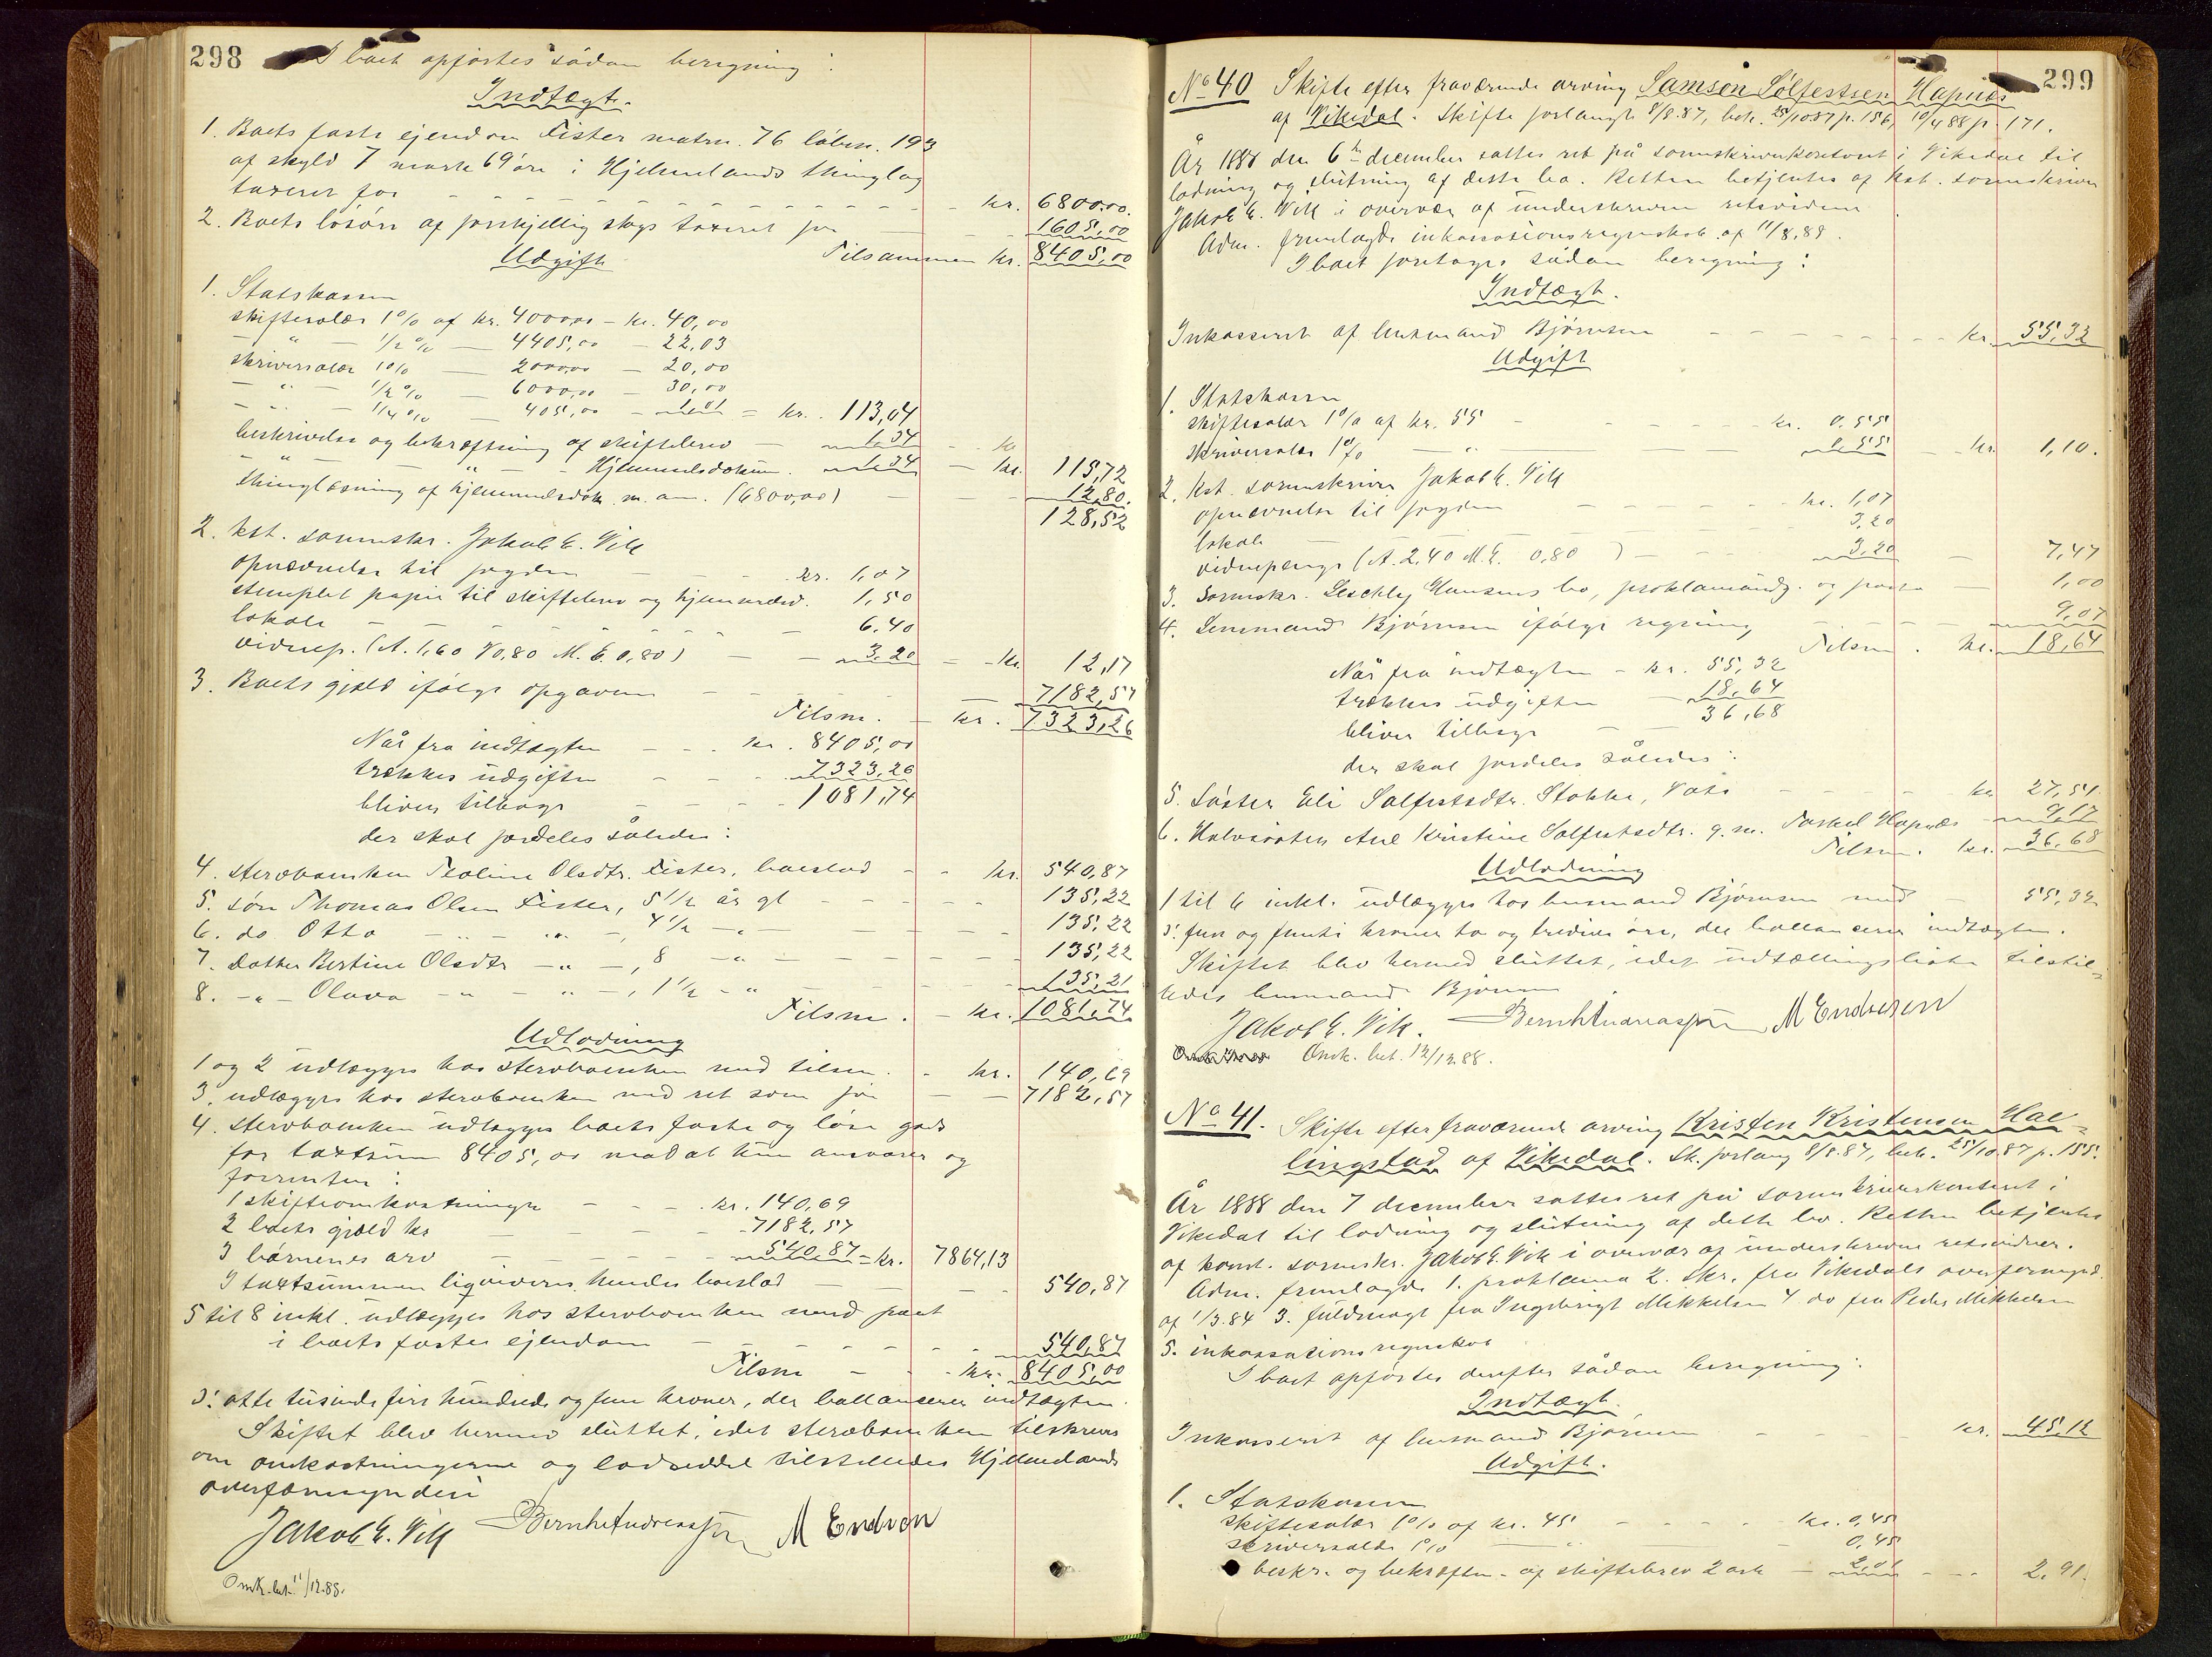 298
I boet opførtes sådan beregning:
Indtægt.
1. Boets faste ejendom Fister matrn. 76 løben. 193
af skyld 7 mark 69 øre i Hjelmelands thinglag
taxeret for - - - kr. 6800,00.
2. Boets løsøre af forskjellig slags taxeret for - - 1605,00
Tilsammen kr. 8405,00
Udgift
1. Statskassen
skiftesalær 1% af kr. 4000,00 - kr. 40,00
- " - 1/2 % - 4405,00 - 22,03
skriversalær 1% - 2000,00 - 20,00
- " - 1/2 % - 6000,00 - 30,00
- " - 1/4 % - 405,00 - 1,01 = kr. 113,04
beskrivelse og bekræftning af skiftebrev - 1,34
- " - " - Hjemmelsdokum. 1,34 - kr. 115,72
thinglæsning af hjemmelsdok. m. am. (6800,00) - 12,80.
128,52
2. kst. sorenskr. Jakob E. Vik
opnævnelse til fogden - - kr. 1,07
stemplet papir til skiftebrev og hjemmelsd. 1,50
lokale - - - 6,40
vidnep. (A. 1,60 V 0,80 M. E. 0,80) - - 3,20 - kr. 12,17
3. Boets gjæld ifølge opgaven - - - 7182,57
Tilsm. - kr. 7323,26
Når fra indtægten - - kr. 8405,00
trækkes udgiften - - 7323,26
bliver tilbage - - - 1081,74
der skal fordeles således:
4. sterboenken Teoline Olsdtr. Fister, boeslod - - kr. 540,87
5. søn Thomas Olsen Fister, 5 1/2 år gl - - - 135,22
6. do Otto - " - " -, 4 1/2 - " - - - 135,22
7. Datter Bertine Olsdtr - " -, 8 - " - - - 135,22
8. - " - Olava - " - " -, 1 1/2 - " - - 135,21
Tilsm. - kr. 1081,74
Udlodning
1 og 2 udlægges hos sterboenken med tilsm. - kr. 140,69
3. udlægges hos sterboenken med ret som før - - 7182,57
4. sterboenken udlægges boets faste og løse gods
for taxtsum 8405,00 mod at hun ansvarer og
forrenter:
1 skifteomkostninger - - - kr. 140,69
2 boets gjæld kr - - - 7182,57
3 børnenes arv - - - 540,87 = kr. 7864,13
I taxtsummen ligvideres hendes boeslod - - 540,87
5 til 8 inkl. udlægges hos sterboenken med pant
i boets faste ejendom - - - 540,87
Tilsm - - kr. 8405,00
ɔ: otte tusinde fire hundrede og fem kroner, der ballanserer indtægten.
Skiftet blev hermed sluttet, idet sterboenken tilskreves
om omkostningerne og lodseddel tilstilledes Hjelmelands
overformynderi
Jakob E. Vik Bernh Andreassen M Endresen
Omk. bet. 11/12.88.
299
No 40 Skifte efter fraværende arving Samson Sølfestsen Hapnes
af Vikedal. Skifte forlangt 8/8.87, bek. 25/10 87 p. 156, 10/4 88 p. 171.
År 1888 den 6te december sattes ret på sorenskriverkontoret i Vikedal til
lodning og slutning af dette bo. Retten betjentes af kst. sorenskriver
Jakob E. Vik i overvær af underskrevne retsvidner
Adm. fremlagde inkassationsregnskab af 11/8.88.
I boet foretages sådan beregning:
Indtægt.
Inkasseret af lensmand Bjørnsen - - - kr. 55,32
Udgift
1. Statskassen
skiftesalær 1% af kr. 55 - - - kr. 0,55
skriversalær 1% - " - 0,55 - kr. 1,10.
2. kst. sorenskriver Jakob E. Vik
opnævnelse til fogden - - - kr. 1,07
lokale - 3,20
vidnepenge (A. 2,40 M. E. 0,80) - - - 3,20 - 7,47
3. Sorenskr. Leschly Hansens bo, proklamaudg. og porto - 1,00
4. Lensmand Bjørnsen ifølge regning - - 9,07
Tilsm. kr. 18,64
Når fra indtægten - kr. 55,32
trækkes udgiften - 18,64
bliver tilbage - - 36,68
der skal fordeles således:
5. Søster Eli Sølfestsdtr. Stokke, Vats - - - kr 27,51
6. Halvsøster Ane Kristine Sølfestsdtr. g. m. Torkel Hapnes - 9,17
Tilsm. kr. 36,68
Udlodning
1 til 6 inkl. udlægges hos lensmand Bjørnsen med - 55,32
ɔ: fem og femti kroner to og tredive øre, der ballanserer indtægten.
Skiftet blev hermed sluttet, idet udtællingsliste tilstil-
ledes lensmand Bjørnsen
Jakob E. Vik. Bernh Andreassen M Endresen
Omk. bet. 12/12.88.
No 41. Skifte efter fraværende arving Kristen Kristensen Hal-
lingstad af Vikedal. Sk. forlang 8/8.87, bek. 25/10.87 p. 155.
År 1888 den 7 december sattes ret på sorenskriverkontoret i
Vikedal til lodning og slutning af dette bo. Retten betjentes
af konst. sorenskr. Jakob E. Vik i overvær af underskrevne retsvidner.
Adm. fremlagde 1. proklama 2. Skr. fra Vikedals overformynd.
af 1/3.84 3. fuldmagt fra Ingebrigt Mikkelsen 4 do fra Peder Mikkelsen
5. inkassationsregnskab
I boet opførtes derefter sådan beregning:
Indtægt.
Inkasseret af lensmand Bjørnsen - - - kr. 45,12
Udgift.
1. Statskassen
skiftesalær 1% af kr. 45 - - - kr. 0,45
skriversalær 1% - " - 0,45
beskr. og bekræftn. af skiftebrev 2 ark - 2,01 - - 2,91.